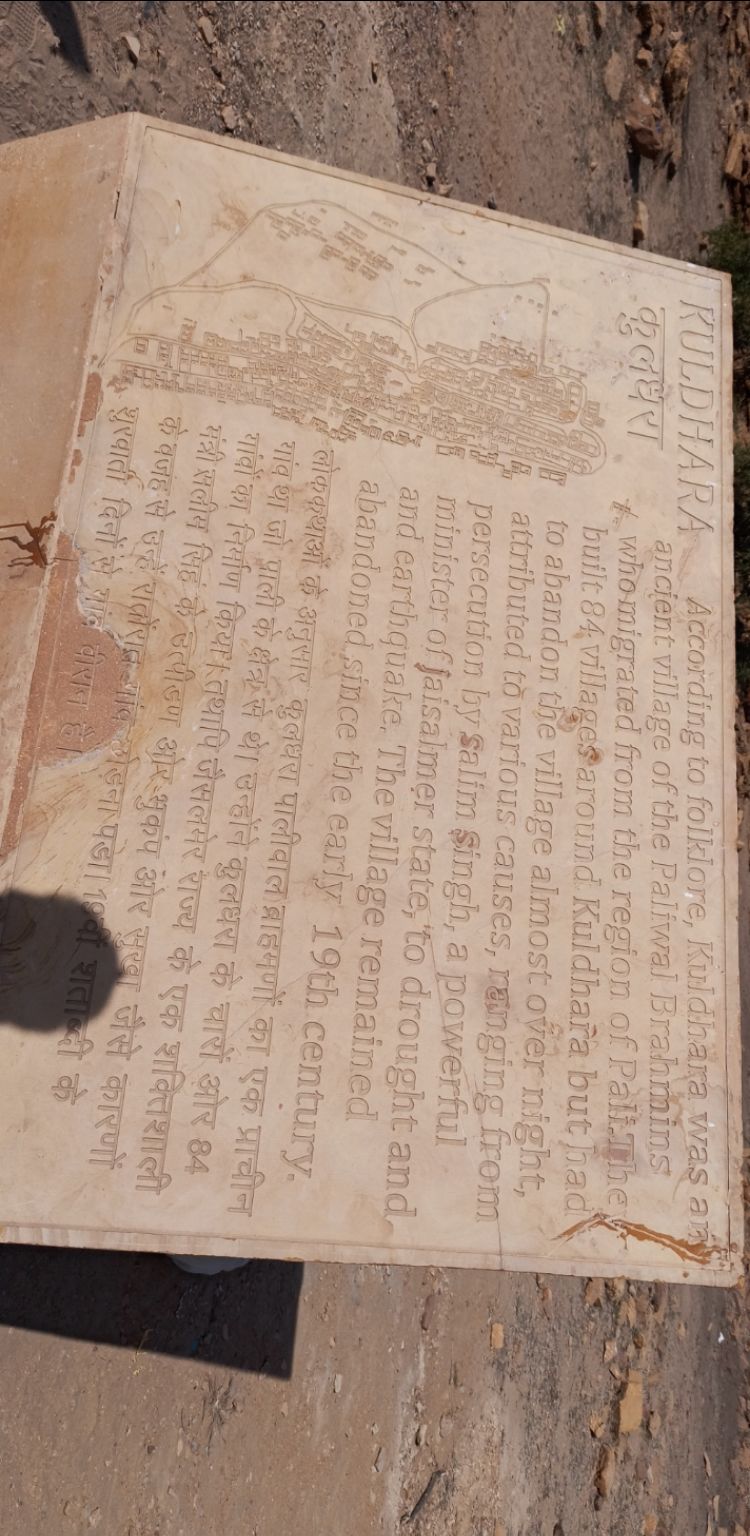 KULDHARA
कुलधरा
According to folklore, Kuldhara was an
ancient village of the Paliwal Brahmins
who migrated from the region of Pali. The
built 84 villages around Kuldhara but had
to abandon the village almost over night,
attributed to various causes, ranging from
persecution by Salim Singh, a powerful
minister of Jaisalmer state, to drought and
and earthquake. The village remained
abandoned since the early 19th century.
लोककथाओं के अनुसार कुलधरा पालीवाल ब्राहमणों का एक प्राचीन
गांव था जो पाली के क्षेत्र से थे। उन्होंने कुलधरा के चारों ओर 84
गांवों का निर्माण किया। तथापि जैसलमेर राज्य के एक शक्तिशाली
मंत्री सलीम सिंह के उत्पीड़ण और भुकंप और सुखा जैसे कारणों
के वजह से उन्हें रातोंरात गांव छोडना पडा। 19वीं शताब्दी के
शुरुवाती दिनों से वीरान है।